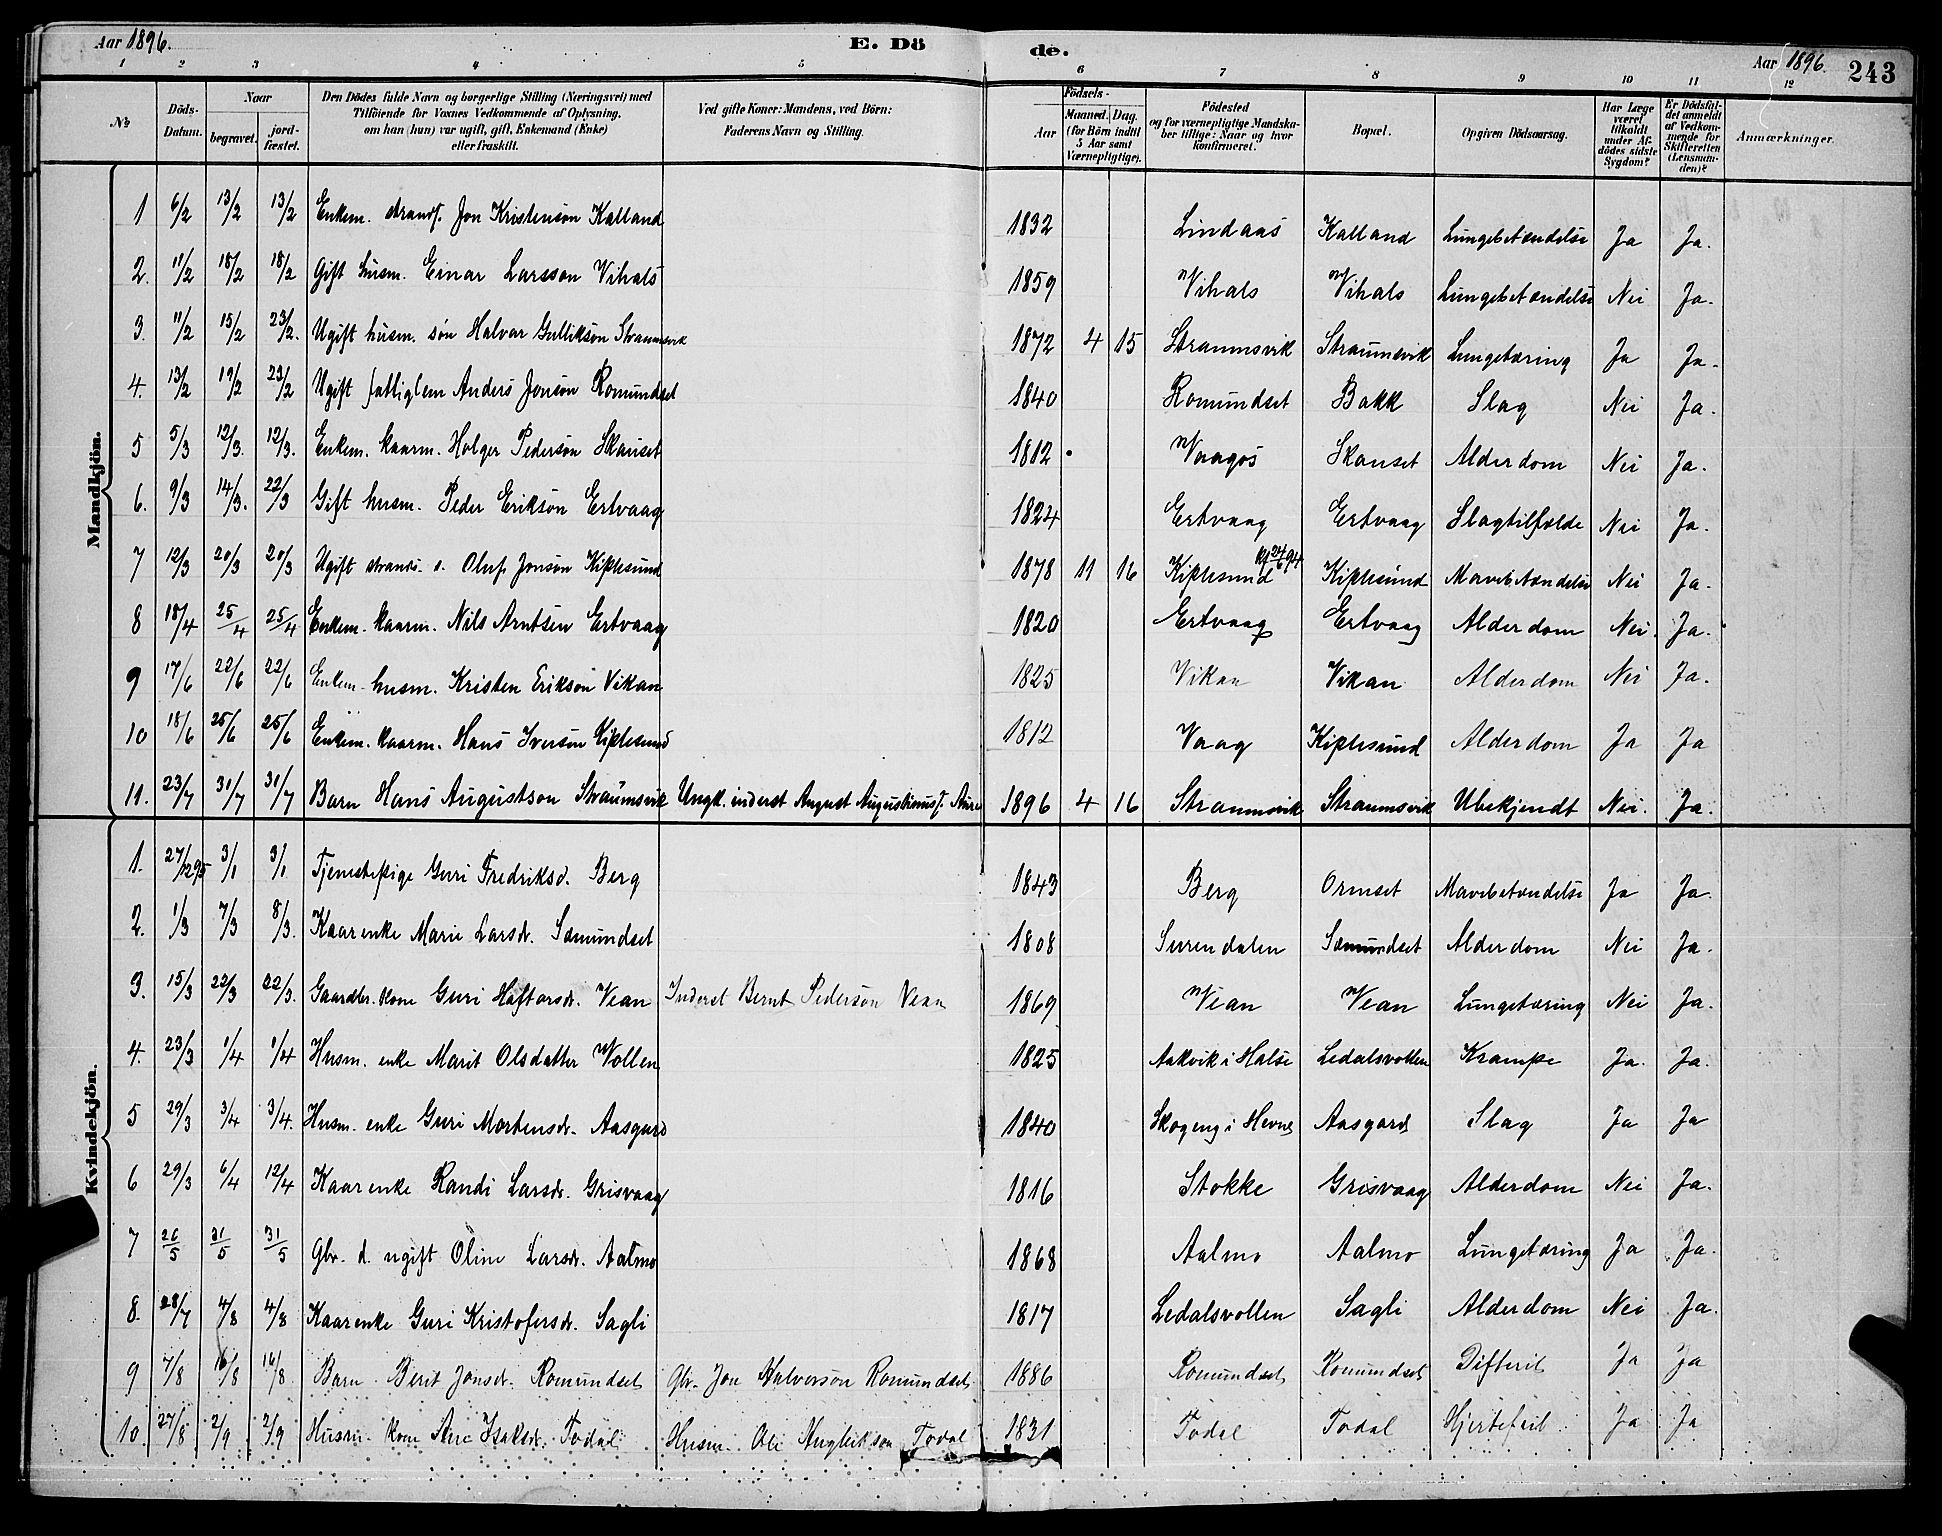 Aar 1896. E. Dö de. Aar 1896. 243
1 2 3 4 5 6 7 8 9 10 11 12
No Döds-Datum. Naar begravet. jordfæstet. Den Dödes fulde Navn og borgerlige Stilling (Næringsvei) med Tilföiende for Voxnes Vedkommende af Oplysning, om han (hun) var ugift, gift, Enkemand (Enke) eller fraskilt. Ved gifte Koner: Mandens, ved Börn: Faderens Navn og Stilling. Födsels- Aar Maaned. Dag. (for Börn indtil 5 Aar samt Værnepligtige). Födested og for værnepligtige Mandskaber tillige: Naar og hvor konfirmeret. Bopæl. Opgiven Dödsaarsag. Har Læge været tilkaldt under Afdödes sidste Sygdom? Er Dödsfaldet anmeldt af Vedkommende for Skifteretten (Lensmanden)? Anmærkninger.
Mandkjön.
1 6/2 13/2 13/2 Enkem. strands. Jon Kristenson Kalland 1832 Lindaas Kalland Lungebetændelse Ja Ja.
2. 11/2 18/2 18/2 Gift husm. Einar Larsson Vihals 1859 Vihals Vihals Lungebetændelse Nei Ja.
3. 11/2 15/2 23/2. Ugift husm. søn Halvar Gullikson Straumsvik 1872 4 15 Straumsvik Straumsvik Lungetæring Ja Ja.
4. 13/2 19/2 23/2 Ugift fattiglem Anders Jonson Romundset 1840 Romundset Bakk Slag Nei Ja.
5 5/3 12/3. 12/3. Enkem. kaarm. Holger Pederson Skanset 1812 Vaagos Skanset Alderdom Nei Ja.
6. 9/3 14/3. 22/3 Gift husm. Peder Erikson Ertvaag 1824 Ertvaag Ertvaag Slagtilfælde Nei Ja.
7 12/3 20/3 20/3 Ugift strands. s. Oluf Jonson Kiplesund 1878 11 16 Kiplesund Kiplesund Mavebetændelse Nei Ja.
8 18/4 25/4 25/4 Enkem. kaarm. Nils Arntsen Ertvaag 1820 Ertvaag Ertvaag Alderdom Nei. Ja.
9 17/6 22/6 22/6 Enkem. husm. Kristen Erikson Vikan 1825 Vikan Vikan Alderdom Nei Ja.
10 18/6 25/6 25/6 Enkem. kaarm. Hans Iverson Kiplesund 1812 Vaag Kiplesund Alderdom Ja Ja
11. 23/7 31/7 31/7 Barn Hans Augustson Straumsvik Ungk. inderst August Augustinus. Aure 1896 4 16 Straumsvik Straumsvik Ubekjendt Nei. Ja.
Kvindekjön.
1. 27/12 95 3/1 3/1 Tjenestepige Guri Fredriksd. Berg 1843 Berg Ormset Mavebetændelse Ja Ja.
2. 1/3 7/3 8/3. Kaarenke Marie Larsdr. Sæmundset 1808 Surendalen Sæmundset Alderdom Nei Ja.
3. 15/3 22/3 22/3. Gaardbr. kone Guri Haftorsdr. Vean Inderst Bernt Pederson Vean 1869 Vean Vean Lungetæring Nei Ja.
4. 23/3 1/4 1/4 Husm. enke Marit Olsdatter Vollen 1825 Aakvik i Halse Ledalsvollen Krampe Ja. Ja.
5 29/3 3/4 3/4. Husm. enke Guri Mortensdr. Aasgard 1840 Skogeng i Hevne Aasgard Slag Ja Ja
6 29/3 6/4 12/4 Kaarenke Randi Larsdr. Grisvaag 1816 Stokke Grisvaag Alderdom Nei Ja.
7 26/5 31/5 31/5 Gbr. d. ugift Oline Larsdr. Aalmo 1868 Aalmo Aalmo Lungetæring Ja Ja.
8. 28/7 4/8 4/8 Kaarenke Guri Kristofersdr. Sagli 1817 Ledalsvollen Sagli Alderdom Nei Ja.
9 7/8 16/8 16/8 Barn Berit Jonsdr. Romundset Gbr. Jon Halvorson Romundset 1886 Romundset Romundset Difterit Ja Ja
10. 27/8 2/9 2/9 Husm. kone Ane Isaksdr. Todal Husm. Ole Todal 1831 Todal Todal Hjertefeil Ja Ja